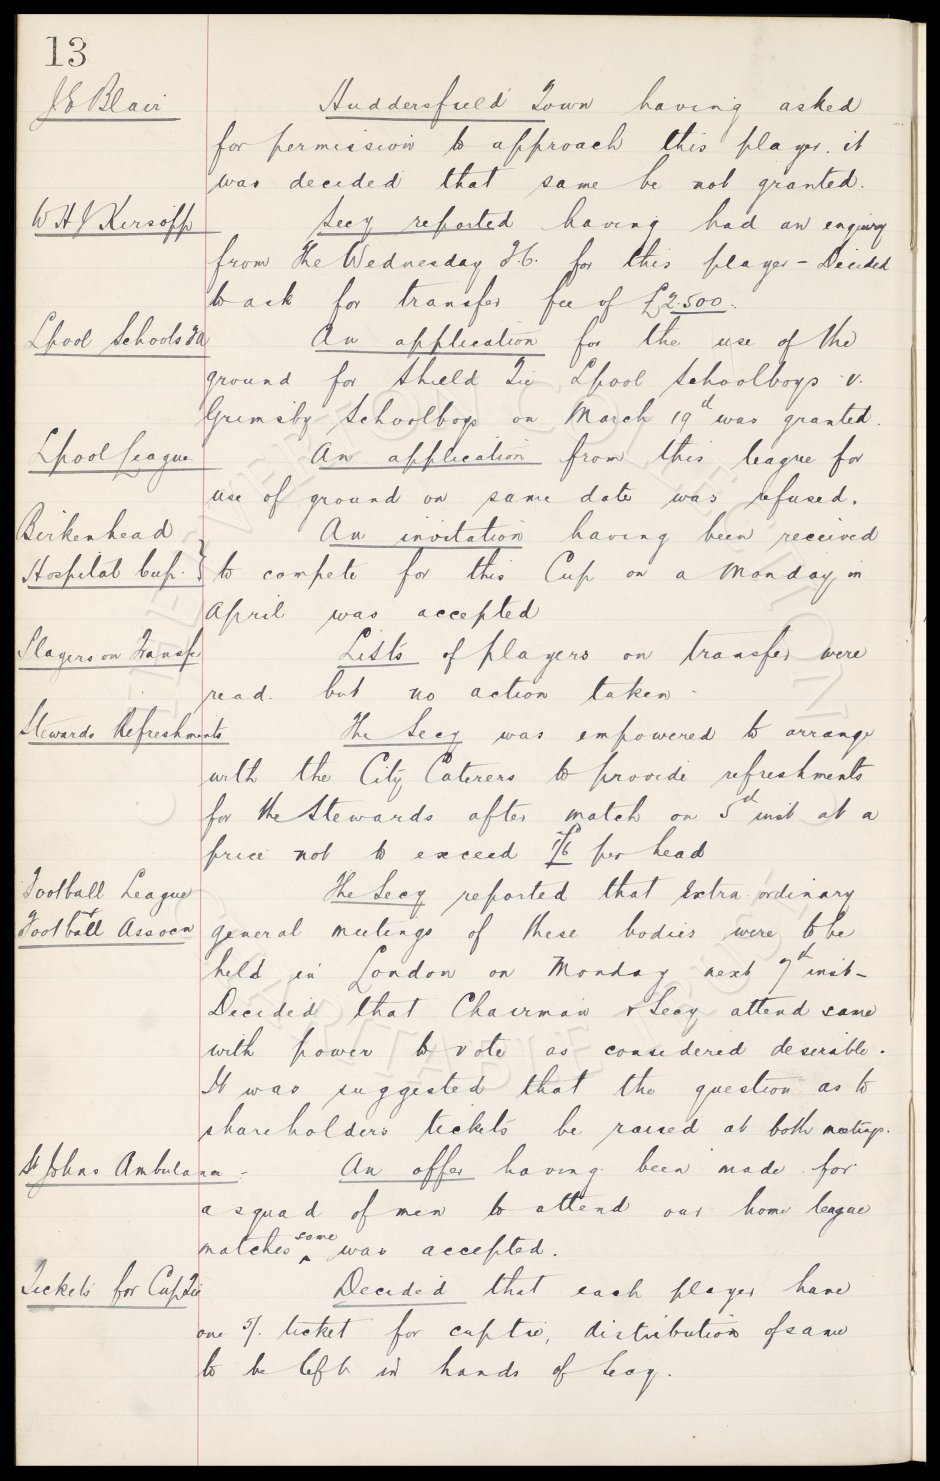 13
J E Blair
Huddersfield Town having asked
for permission to approach this player. it
was decided that same be not granted.
W H J Kirsopp
Secy reported having had an enquiry
from The Wednesday F.C. for this player - Decided
to ask for transfer fee of £2.500.
Lpool Schools FA
An application for the use of the
ground for Shield Tie Lpool Schoolboys v.
Grimsby Schoolboys on March 19th was granted.
Lpool League
An application from this league for
use of ground on same date was refused.
Birkenhead
Hospital Cup.
An invitation having been received
to compete for this Cup on a Monday in
April was accepted
Players on Transfer
Lists of players on transfer were
read. but no action taken -
Stewards Refreshments
The Secy was empowered to arrange
with the City Caterers to provide refreshments
for the Stewards after match on 5th inst at a
price not to exceed 7/6 per head
Football League
+
Football Assocn
The Secy reported that Extra ordinary
general meetings of these bodies were to be
held in London on Monday next 7th inst -
Decided that Chairman & Secy attend same
with power to vote as considered desirable.
It was suggested that the question as to
shareholders tickets be raised at both meetings.
St Johns Ambulance -
An offer having been made for
a squad of men to attend our home league
matches same was accepted.
Tickets for Cup Tie
Decided that each player have
one 5/. ticket for cup tie, distribution of same
to be left in hands of Secy.
THE EVERTON COLLECTION
CHARITABLE TRUST